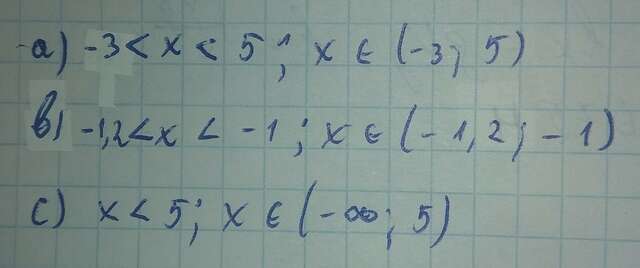 a) -3 < x < 5; x ∈ (-3; 5)
b) -1,2 < x < -1; x ∈ (-1,2; -1)
c) x < 5; x ∈ (-∞; 5)